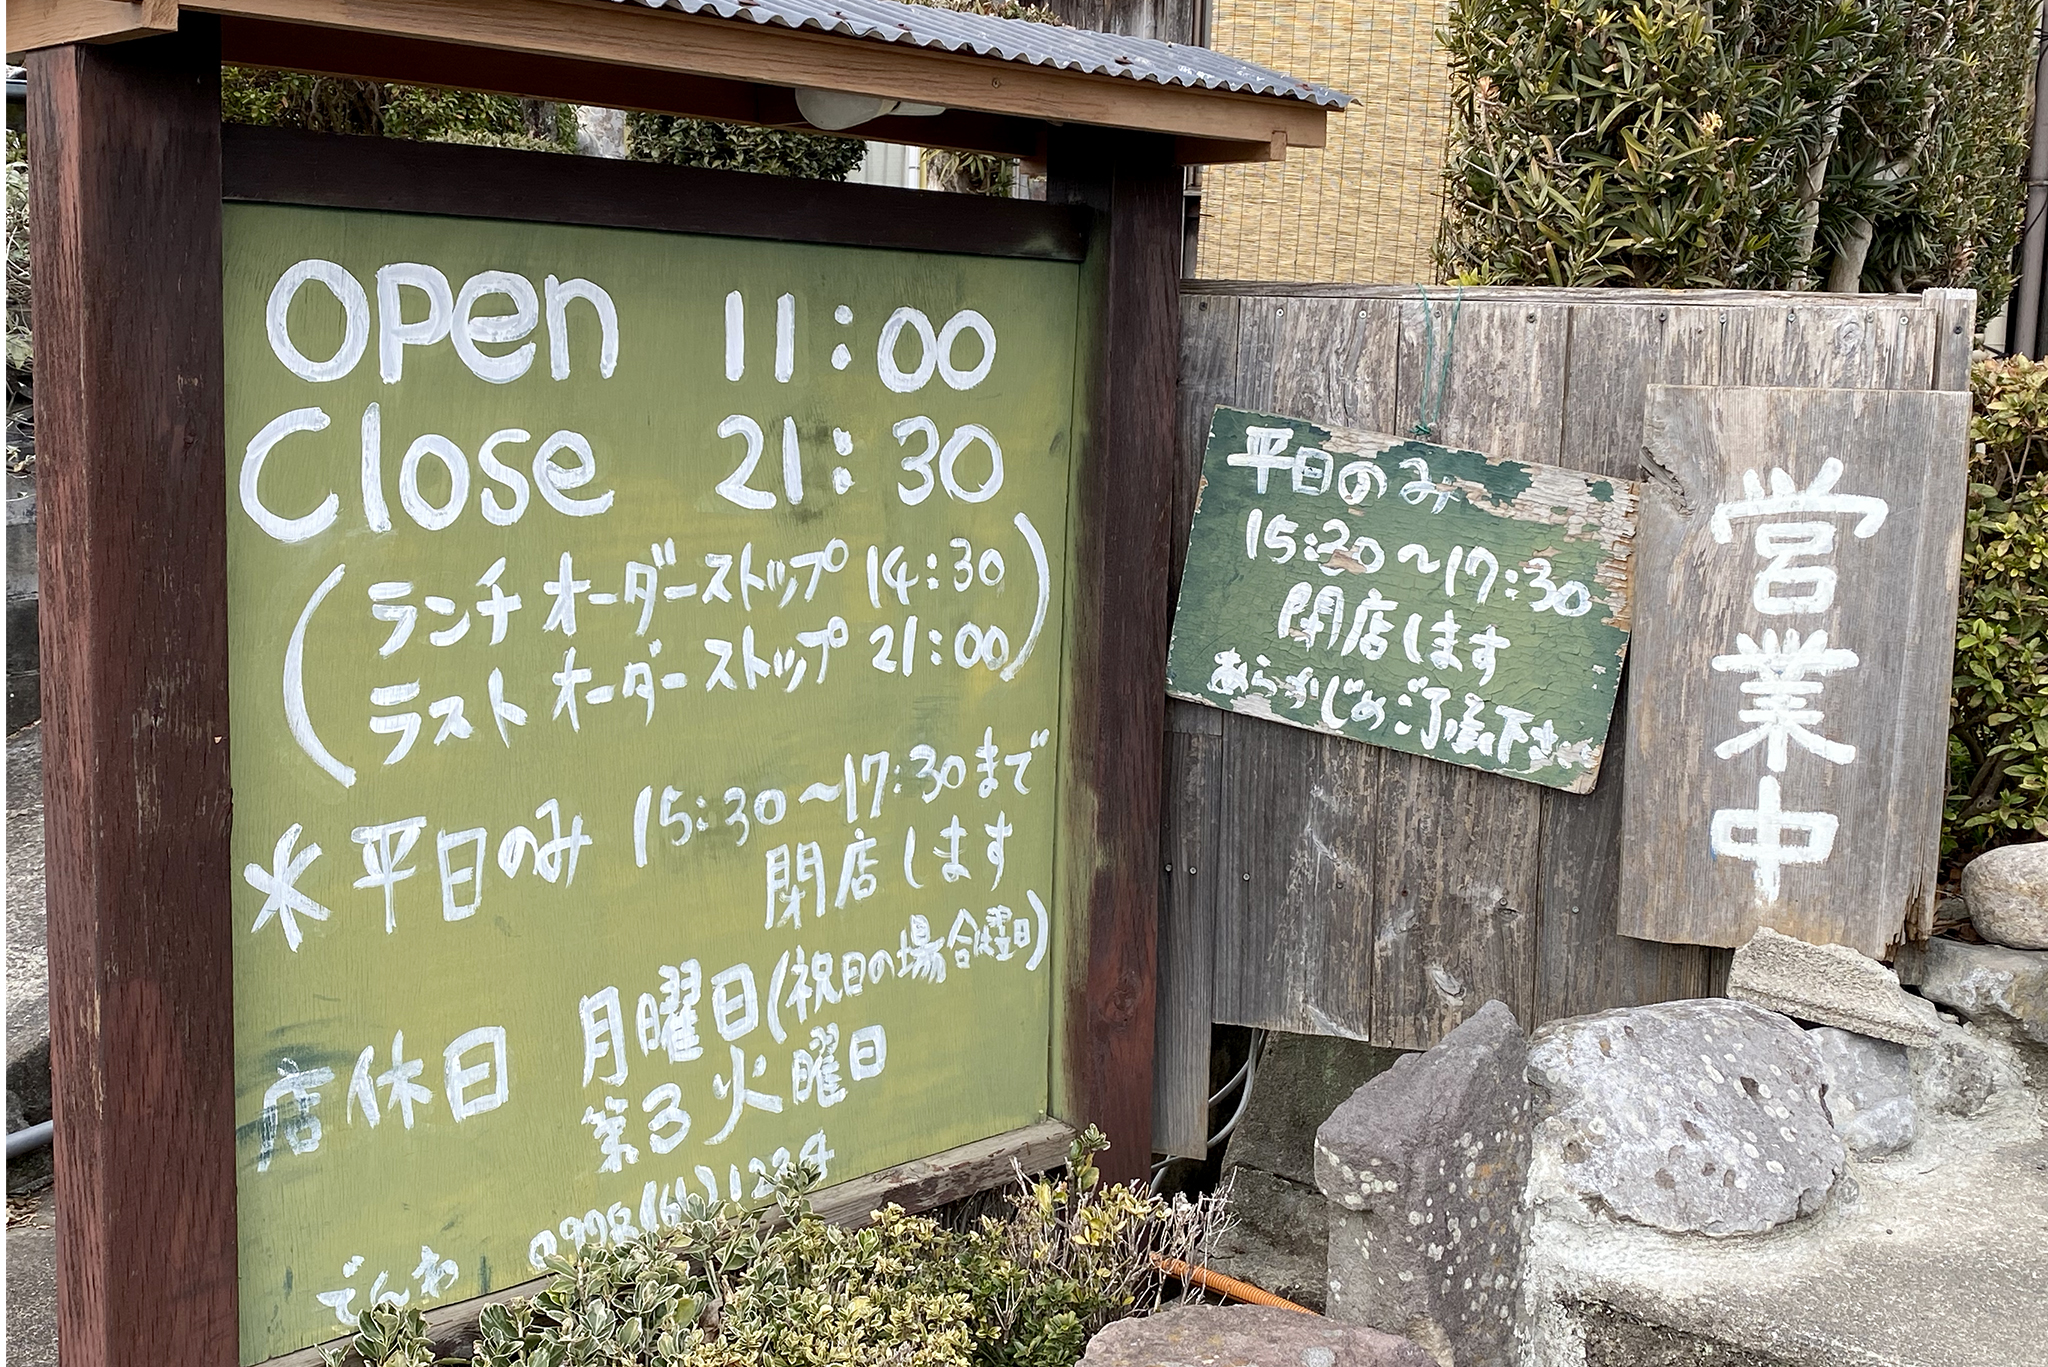 open 11:00
Close 21:30
(ランチ オーダーストップ 14:30
ラスト オーダーストップ 21:00)
※平日のみ 15:30〜17:30まで
閉店します
店休日 月曜日(祝日の場合営業)
第3火曜日
でんわ
平日のみ
15:30〜17:30
閉店します
あらかじめご了承下さい
営業中